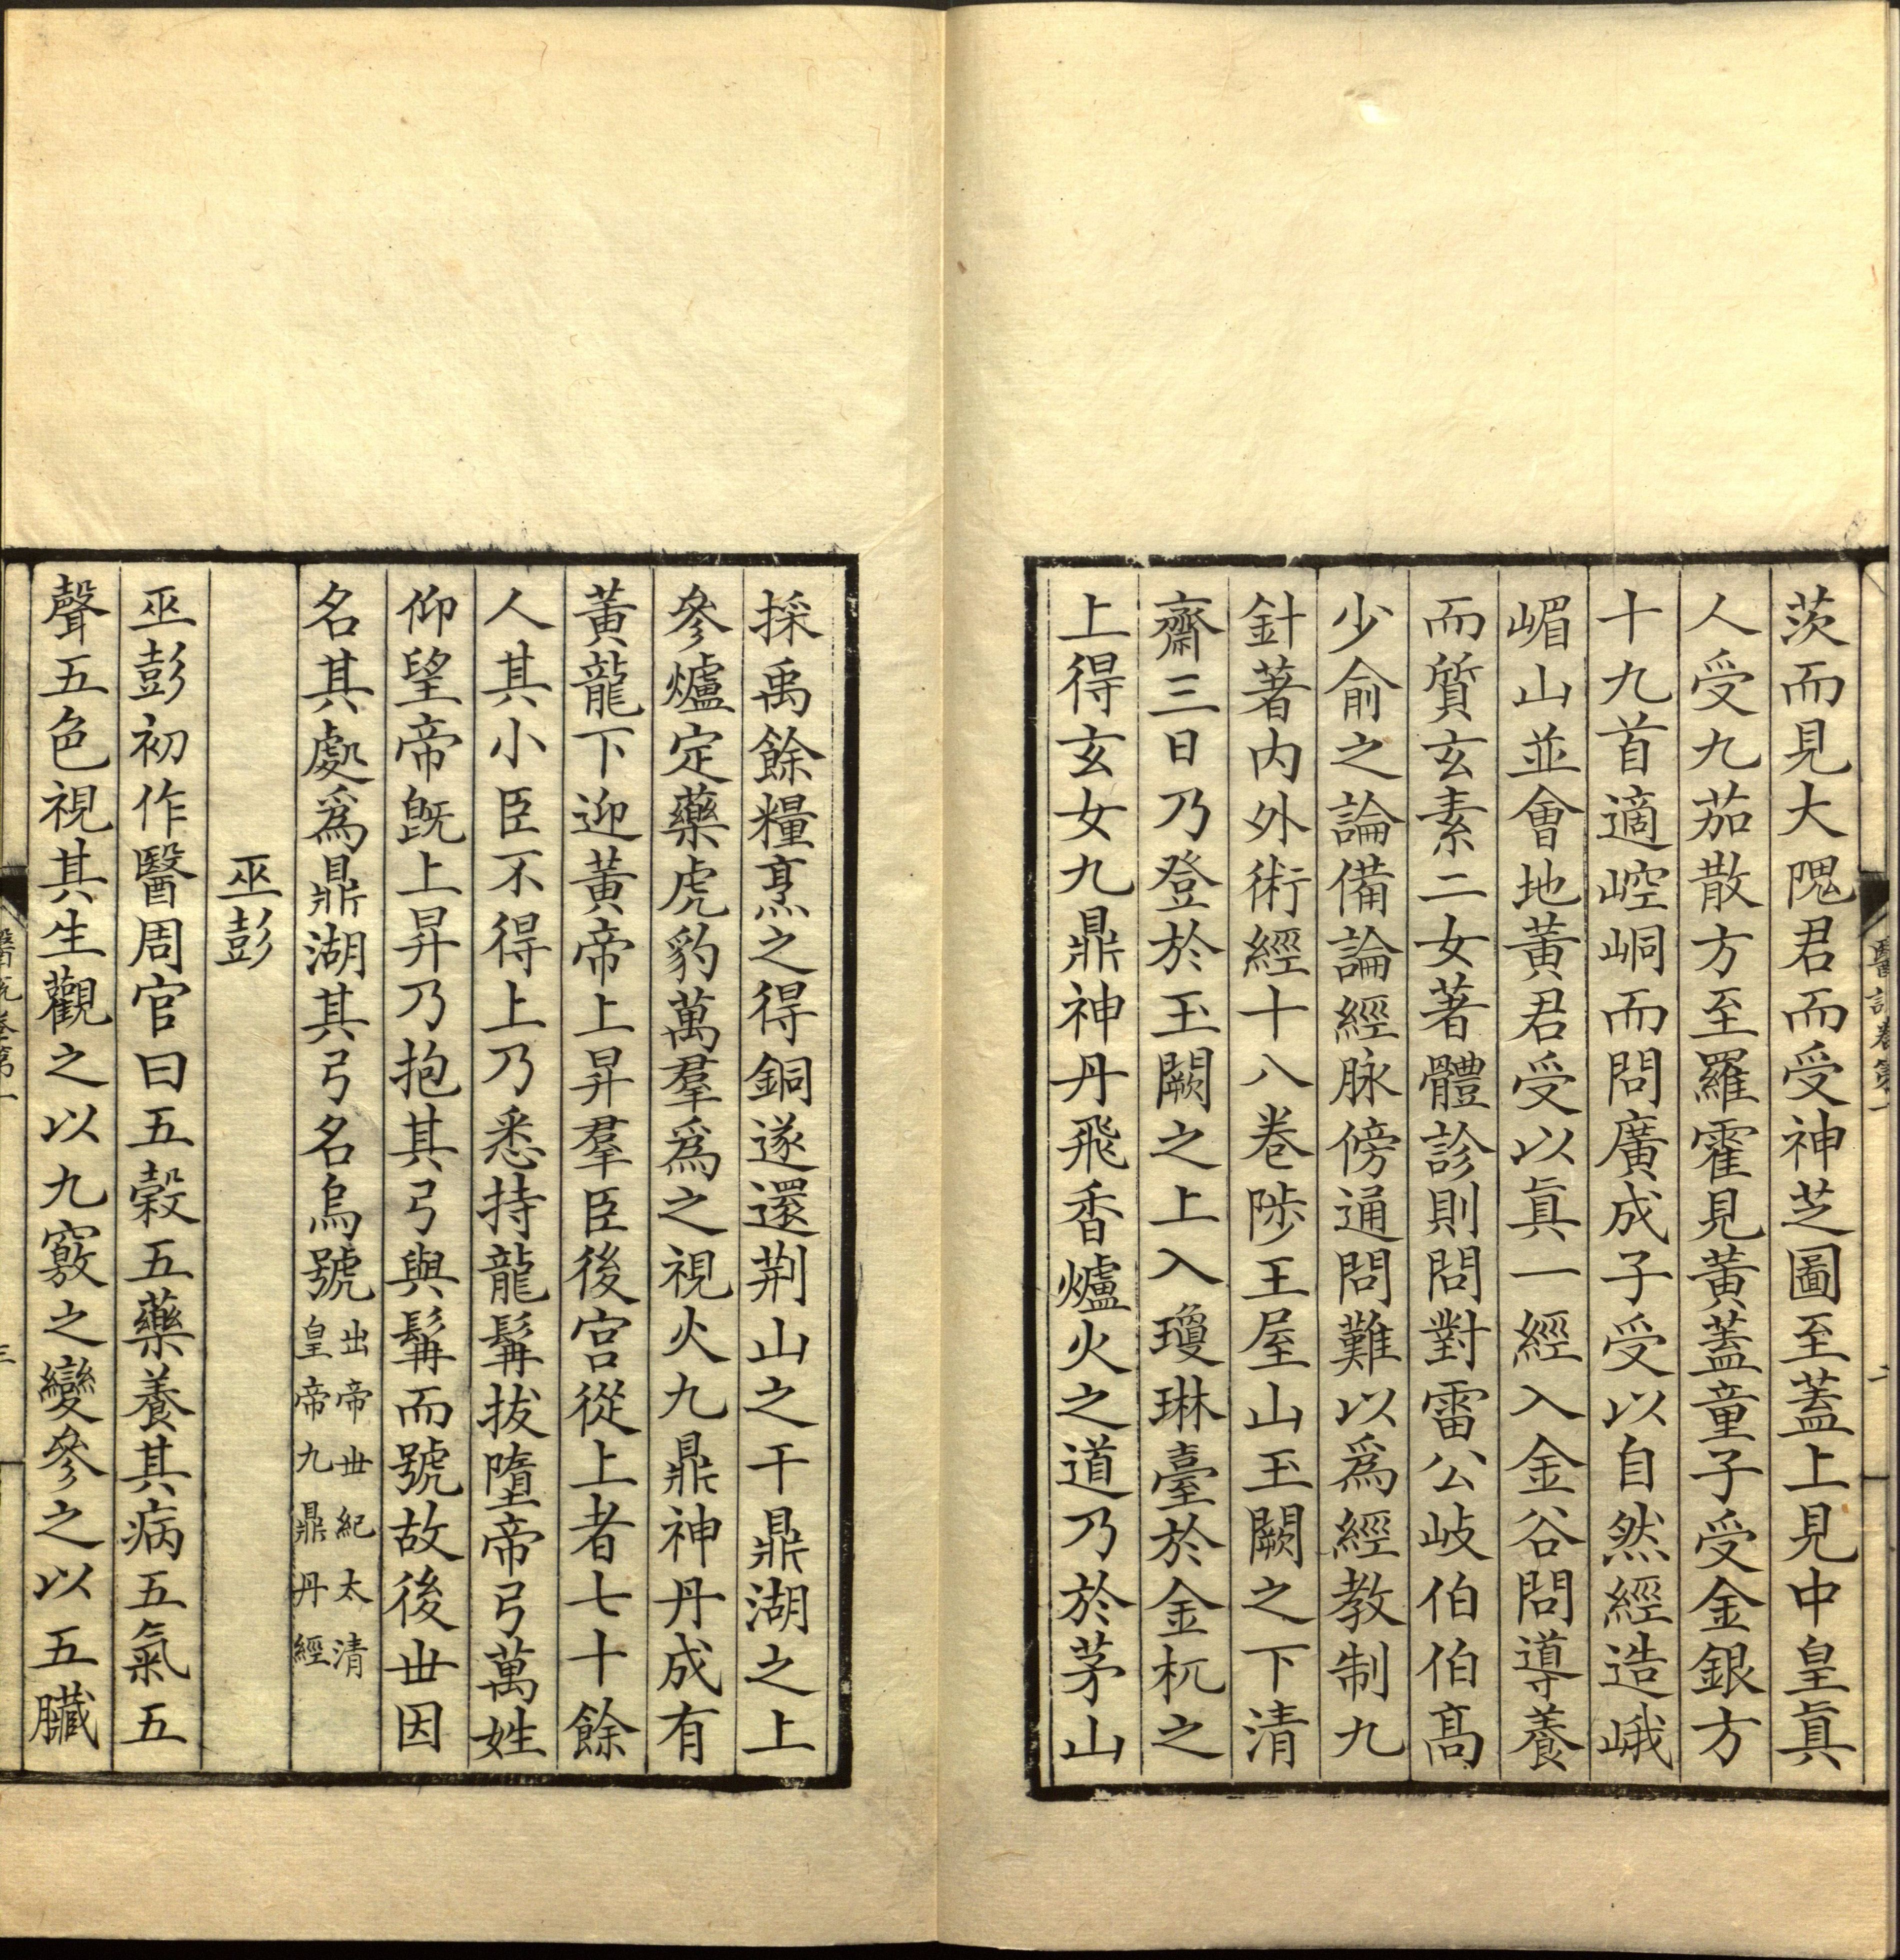 茨而見大隗君而受神芝圖至蓋上見中皇眞
人受九茄散方至羅霍見黃蓋童子受金銀方
十九首適崆峒而問廣成子受以自然經造峨
嵋山並會地黃君受以眞一經入金谷問導養
而質玄素二女著體診則問對雷公岐伯伯高
少俞之論備論經脉傍通問難以爲經教制九
針著内外術經十八卷陟王屋山玉闕之下清
齋三日乃登於玉闕之上入瓊琳臺於金机之
上得玄女九鼎神丹飛香爐火之道乃於茅山
採禹餘糧烹之得銅遂還荆山之干鼎湖之上
參爐定藥虎豹萬羣爲之視火九鼎神丹成有
黃龍下迎黃帝上昇羣臣後宮從上者七十餘
人其小臣不得上乃悉持龍髯拔墮帝弓萬姓
仰望帝旣上昇乃抱其弓與髯而號故後丗因
名其處爲鼎湖其弓名烏號出帝丗紀太清
皇帝九鼎丹經
巫彭
巫彭初作醫周官曰五穀五藥養其病五氣五
聲五色視其生觀之以九竅之變參之以五臟